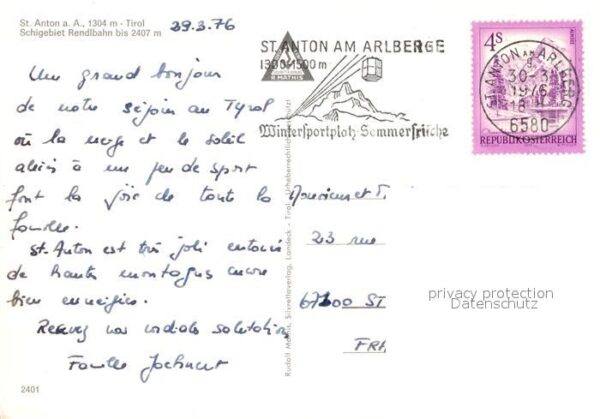 St. Anton a. A., 1304 m - Tirol
Schigebiet Rendlbahn bis 2407 m
29.3.76
Un grand bonjour
de notre séjour au Tyrol
où la neige et le soleil
alliés à un peu de sport
font la joie de toute la
famille.
St. Anton est très joli entouré
de hautes montagnes encore
bien enneigées.
Recevez nos cordiales salutations
Famille
2401
Rudolf Mathis, Silvrettaverlag, Landeck - Tirol - Urheberrechtlich geschützt!
R. MATHIS
ST. ANTON AM ARLBERG
1300-1500 m
Wintersportplatz-Sommerfrische
ST. ANTON AM ARLBERG
30.-3.
1976
18
6580
4S
REPUBLIK ÖSTERREICH
Monsieur et
23 rue
67100 ST
FRA
privacy protection
Datenschutz